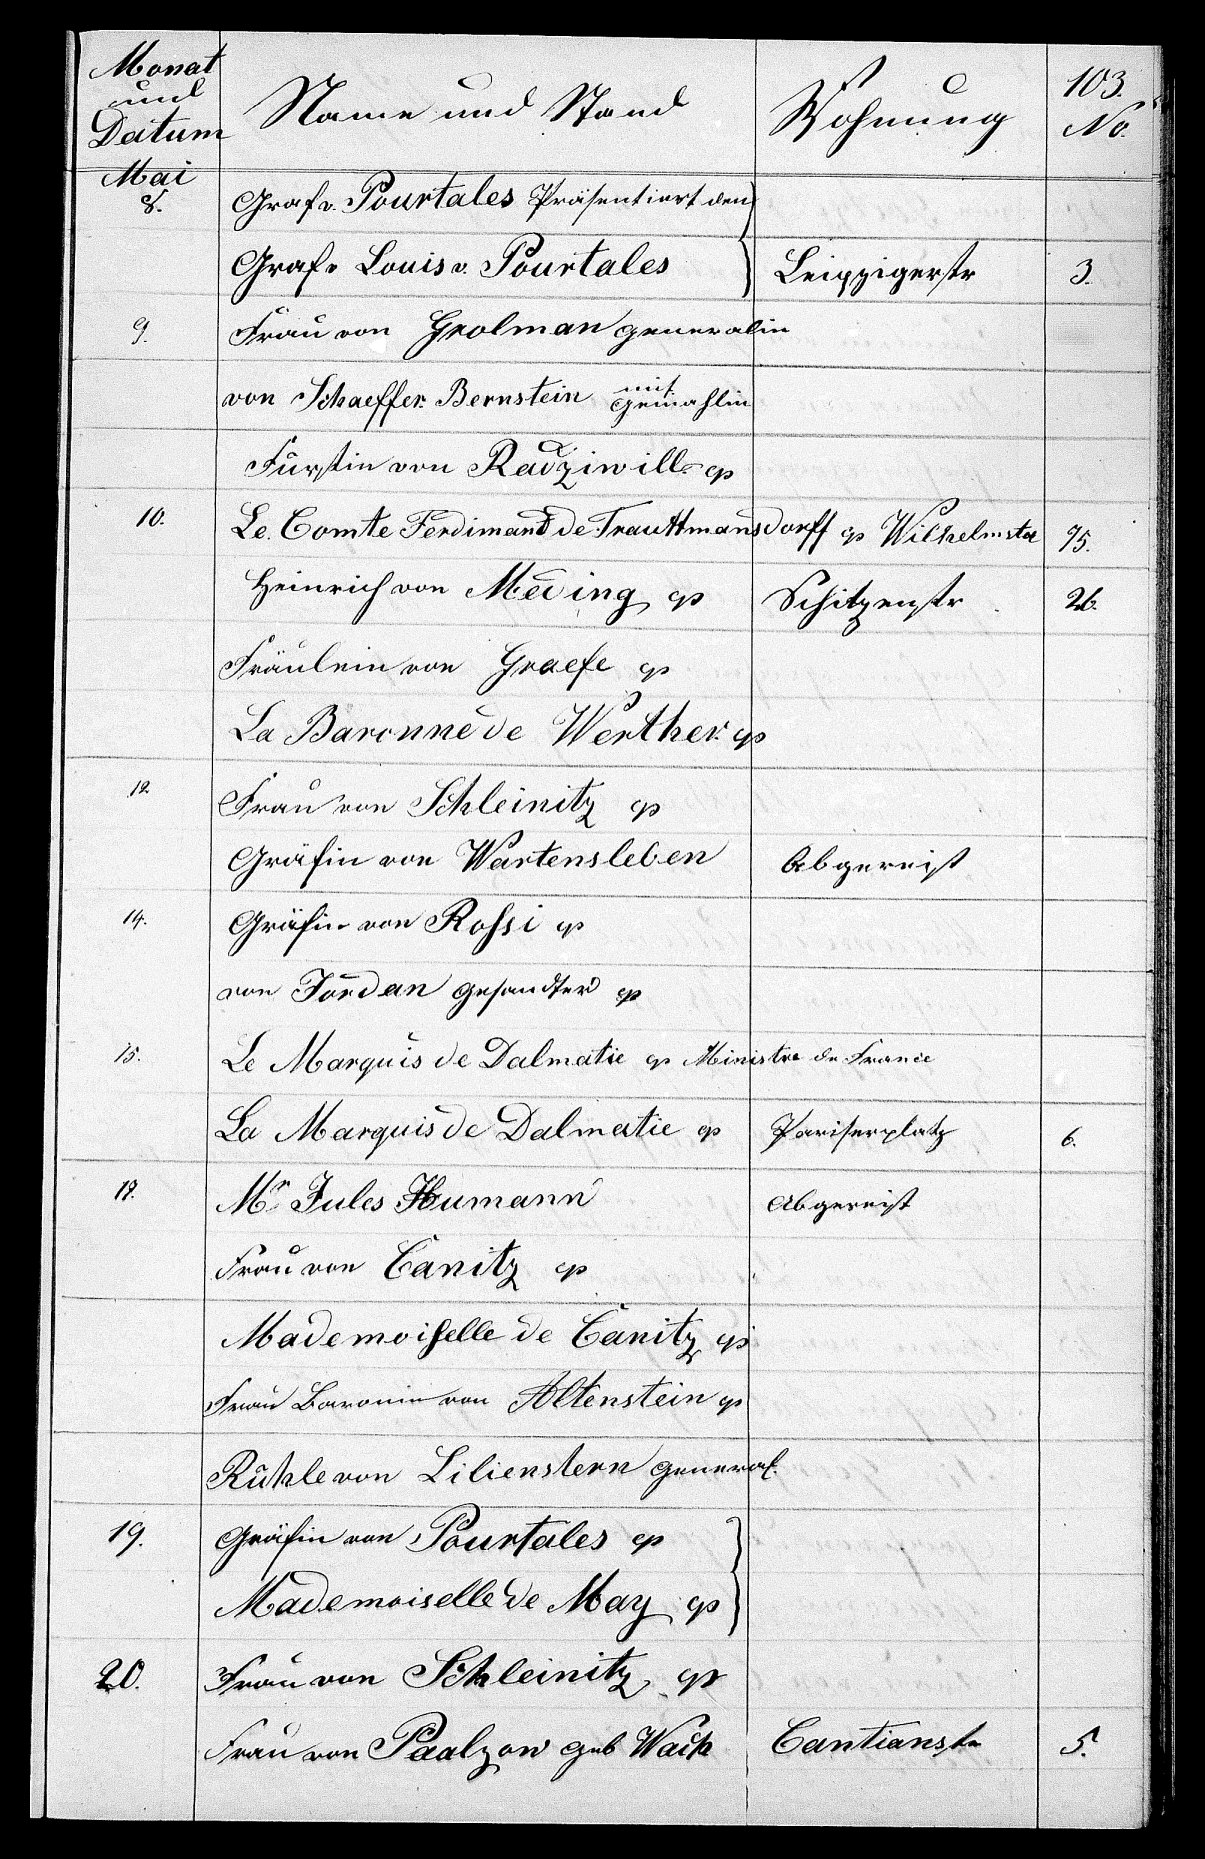 Monat und Datum | Name und Stand | Wohnung | 103. No.
Mai
8. Graf v. Pourtales Präsentiert den
Grafn Louis v. Pourtales } Leipzigerstr 3.
9. Frau von Grolman generalin
von Schaeffer Bernstein mit gemahlin
Fürstin von Radziwill cp
10. Le Comte Ferdimand de Trauttmansdorff cp Wilhelmstr 75.
Heinrich von Meding cp Schitzenstr 26.
Fräulein von Graefe cp
La Baronne de Werther cp
12 Frau von Schleinitz cp
Gräfin von Wartensleben Abgereist
14. Gräfin von Rossi cp
von Jordan gesandter cp
15. Le Marquis de Dalmatie cp Ministre de France
La Marquis de Dalmatie cp Pariserplatz 6.
18. Mr Jules Humann Abgereist
Frau von Canitz cp
Mademoiselle de Canitz cp
Frau Baronin von Altenstein cp
Rühle von Lilienstern general.
19. Gräfin von Pourtales cp
Mademoiselle de May cp }
20. Frau von Schleinitz cp
Frau von Paalzow geb Wach Cantianstr 5.